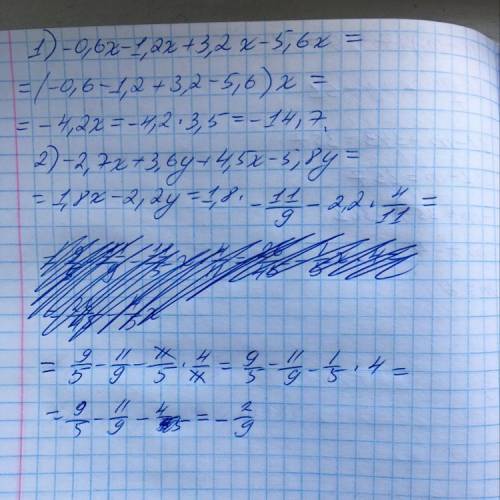 1) -0,6x-1,2x+3,2x-5,6x =
= (-0,6-1,2+3,2-5,6)x =
= -4,2x = -4,2·3,5 = -14,7.
2) -2,7x+3,6y+4,5x-5,8y =
= 1,8x-2,2y = 1,8·-11/9 - 2,2·4/11 =
= 9/5 - 11/9 - 11/5 · 4/11 = 9/5 - 11/9 - 1/5 · 4 =
= 9/5 - 11/9 - 4/5 = -2/9